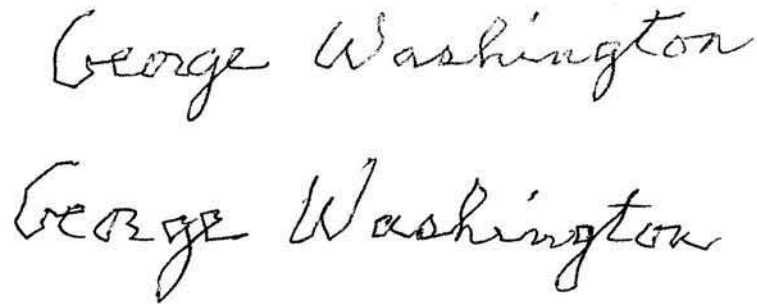 George Washington
George Washington